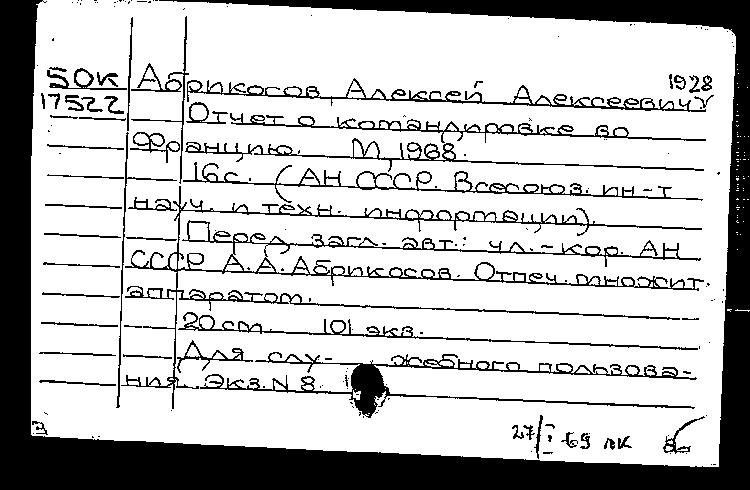 1928
50К Абрикосов, Алексей Алексеевич
17522 Отчет о командировке во
Францию. М, 1968.
16 с. (АН СССР. Всесоюз. ин-т
науч. и техн. информации).
Перед загл. авт.: чл.-кор. АН
СССР А.А. Абрикосов. Отпеч. множит.
аппаратом.
20 cm. 101 экз.
Для слу- жебного пользова-
ния. Экз. N 8.
27/I-69 лк